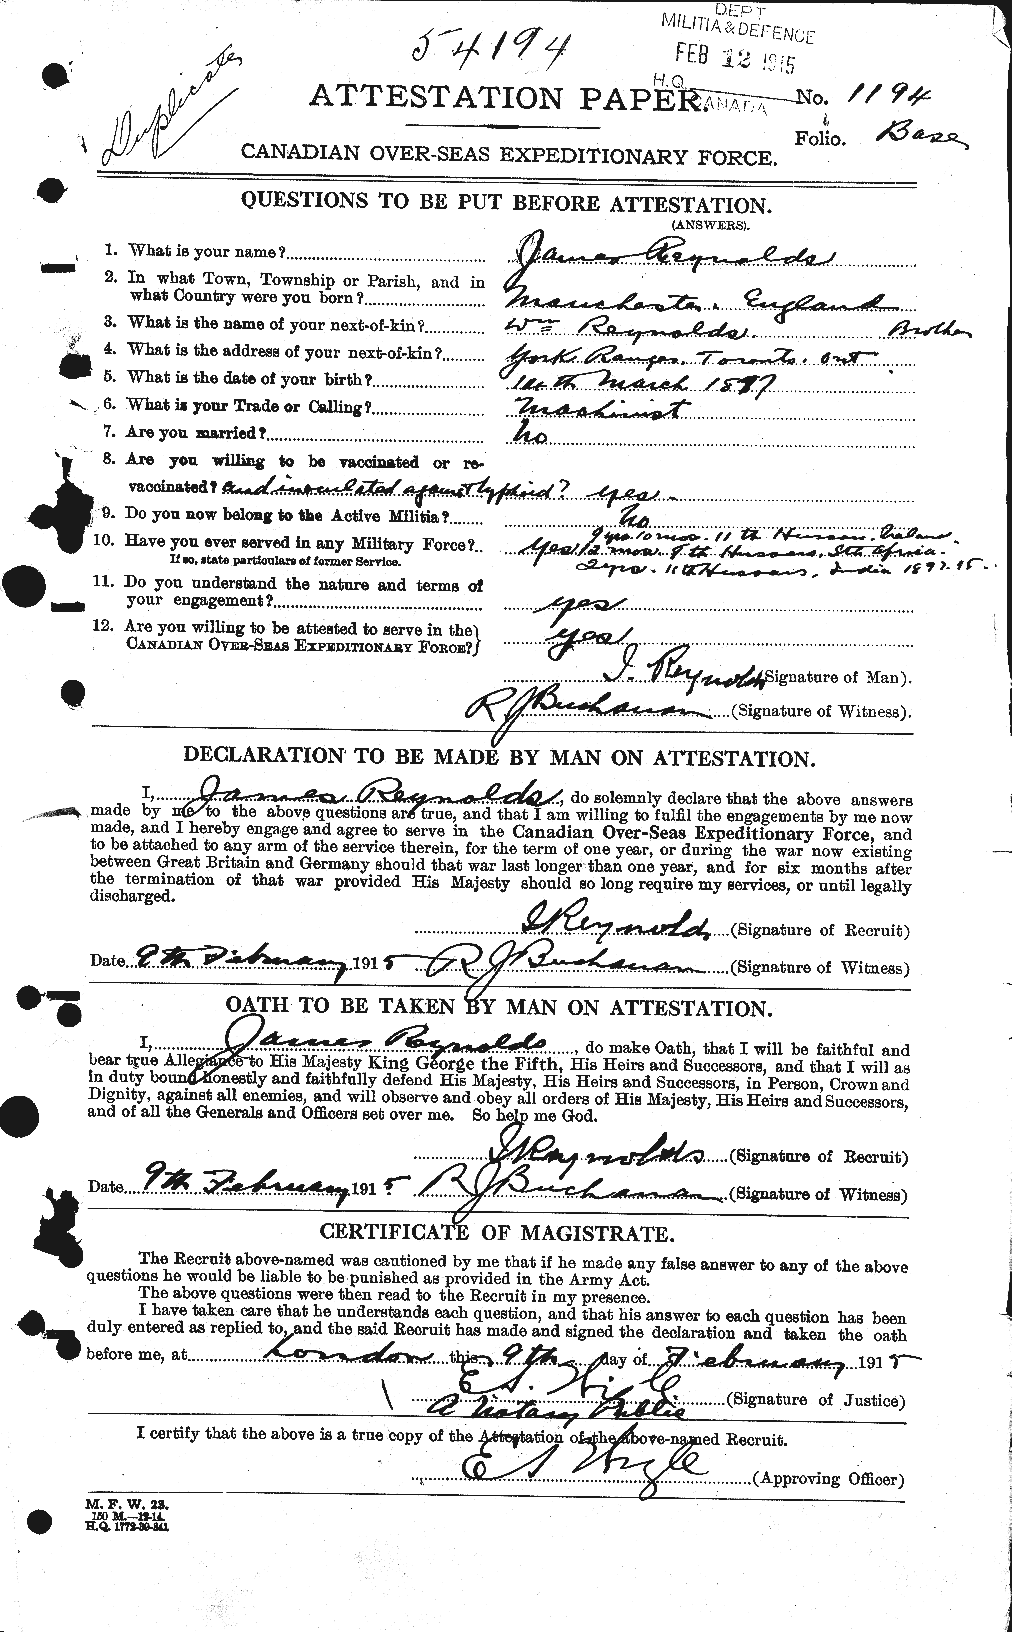 54194
DEPT
MILITIA & DEFENCE
FEB 12 1915
H.Q.
CANADA
Duplicate
ATTESTATION PAPER.
No. 1194
Folio. Base
CANADIAN OVER-SEAS EXPEDITIONARY FORCE.
QUESTIONS TO BE PUT BEFORE ATTESTATION.
(ANSWERS).
1. What is your name? James Reynolds
2. In what Town, Township or Parish, and in
what Country were you born? Manchester. England
3. What is the name of your next-of-kin? Wm Reynolds. Brother
4. What is the address of your next-of-kin? York Ranges. Toronto. Ont
5. What is the date of your birth? March
6. What is your Trade or Calling? Machinist
7. Are you married? No
8. Are you willing to be vaccinated or re-
vaccinated? and inoculated against typhoid? yes -
9. Do you now belong to the Active Militia? No
10. Have you ever served in any Military Force? Yes
If so, state particulars of former Service.
11th Hussars. Ireland
12 mos. 7th Hussars. Sth Africa.
2 yrs. 11th Hussars, India
11. Do you understand the nature and terms of
your engagement? yes
12. Are you willing to be attested to serve in the
CANADIAN OVER-SEAS EXPEDITIONARY FORCE? yes
J. Reynolds (Signature of Man).
R J Buchanan (Signature of Witness).
DECLARATION TO BE MADE BY MAN ON ATTESTATION.
I, James Reynolds, do solemnly declare that the above answers
made by me to the above questions are true, and that I am willing to fulfil the engagements by me now
made, and I hereby engage and agree to serve in the Canadian Over-Seas Expeditionary Force, and
to be attached to any arm of the service therein, for the term of one year, or during the war now existing
between Great Britain and Germany should that war last longer than one year, and for six months after
the termination of that war provided His Majesty should so long require my services, or until legally
discharged.
J Reynolds (Signature of Recruit)
Date 9th February 1915 R J Buchanan (Signature of Witness)
OATH TO BE TAKEN BY MAN ON ATTESTATION.
I, James Reynolds, do make Oath, that I will be faithful and
bear true Allegiance to His Majesty King George the Fifth, His Heirs and Successors, and that I will as
in duty bound honestly and faithfully defend His Majesty, His Heirs and Successors, in Person, Crown and
Dignity, against all enemies, and will observe and obey all orders of His Majesty, His Heirs and Successors,
and of all the Generals and Officers set over me. So help me God.
J Reynolds (Signature of Recruit)
Date 9th February 1915 R J Buchanan (Signature of Witness)
CERTIFICATE OF MAGISTRATE.
The Recruit above-named was cautioned by me that if he made any false answer to any of the above
questions he would be liable to be punished as provided in the Army Act.
The above questions were then read to the Recruit in my presence.
I have taken care that he understands each question, and that his answer to each question has been
duly entered as replied to, and the said Recruit has made and signed the declaration and taken the oath
before me, at London this 9th day of February 1915
E S Wigle (Signature of Justice)
A Notary Public
I certify that the above is a true copy of the Attestation of the above-named Recruit.
E S Wigle (Approving Officer)
M. F. W. 23.
150 M.—12-14.
H.Q. 1772-39-841.